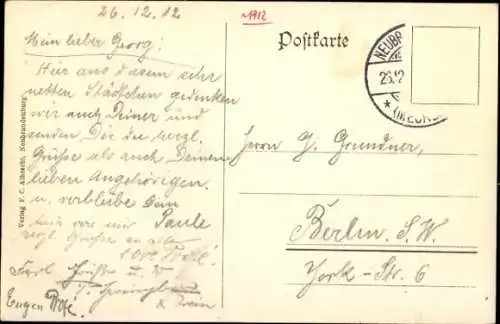 26.12.12
1912
Postkarte
NEUBR
26.12
* (MECKL
Mein lieber Georg!
Hier aus diesem sehr
netten Städtchen gedenken
wir auch Deiner und
senden Dir die herzl.
Grüße als auch Deinen
lieben Angehörigen.
u. verbleibe Dein
Paule
Herrn G. Grundner,
Berlin S.W.
York-Str. 6
Grüße an alle
Karl
Eugen
Verlag F. C. Albrecht, Neubrandenburg